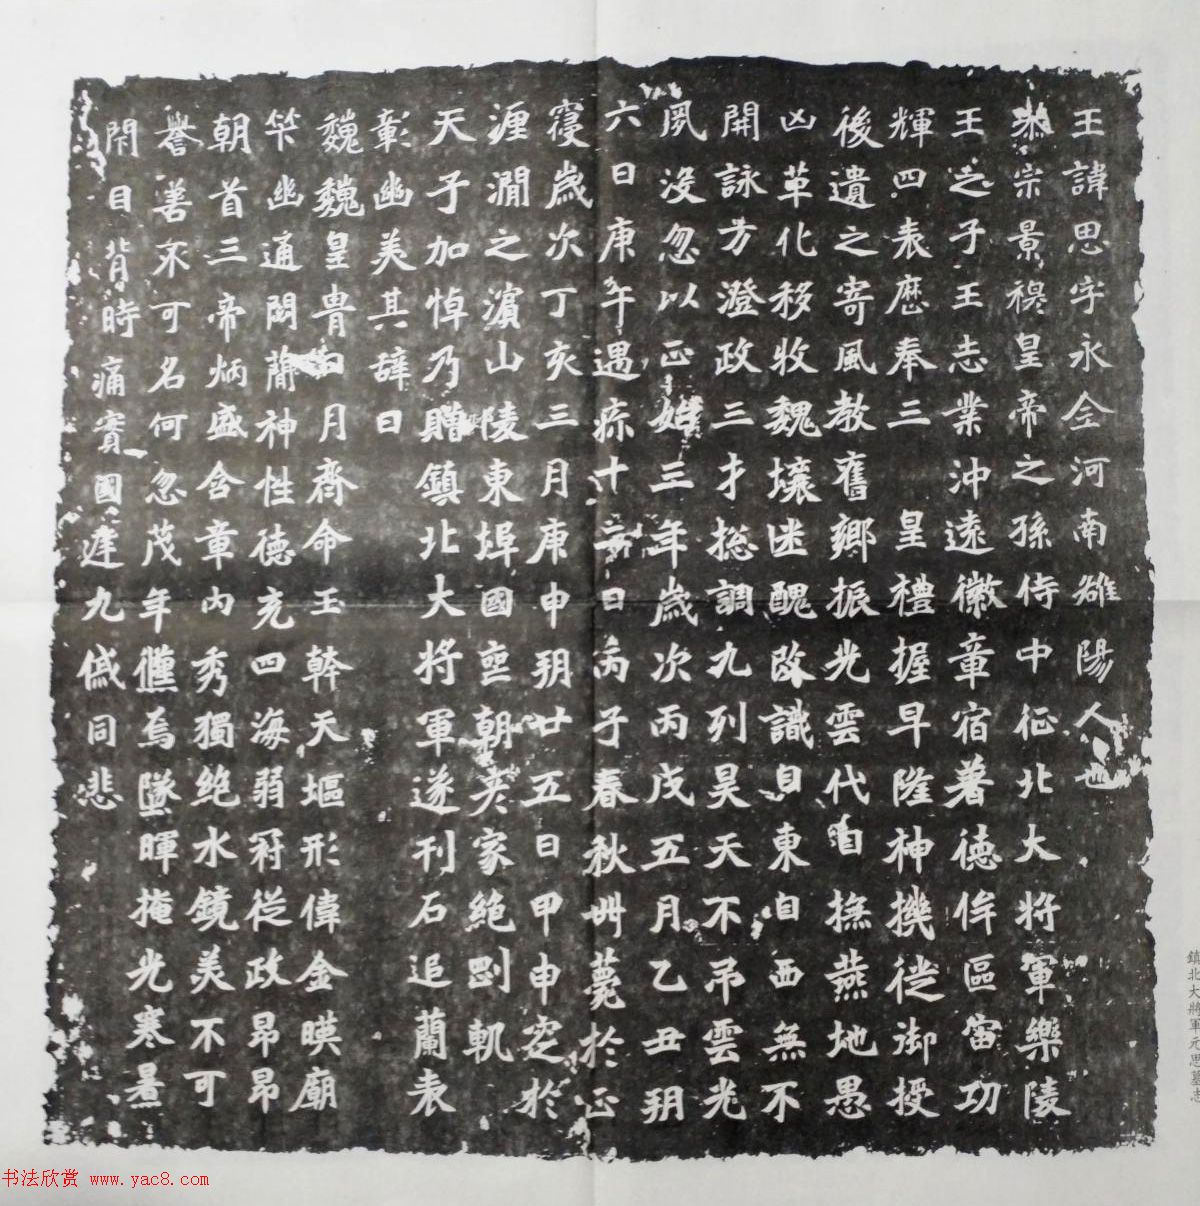 王諱思字永全河南雒陽人也
恭宗景穆皇帝之孫侍中征北大将軍樂陵
王之子王志業沖遠徽章宿著徳侔區宙功
輝四表歷奉三皇禮握早隆神機徙御授
後遺之寄風教舊鄉振光雲代自撫燕地愚
凶草化移牧魏壤迷醜改識自東自西無不
開詠方澄政三才揔調九列昊天不吊雲光
夙没忽以正始三年歲次丙戌五月乙丑朔
六日庚午遇疹十二日丙子春秋卅薨於正
寢歲次丁亥三月庚申朔廿五日甲申窆於
瀍澗之濱山陵東埠國空朝英家絶剛軌
天子加悼乃贈鎮北大将軍遂刊石追蘭表
彰幽美其辭曰
巍巍皇冑日月齊命玉幹天堀形偉金暎廟
竿幽通閟蘭神性徳充四海弱冠從政昂昂
朝首三帝炳盛含章内秀獨絶水鏡美不可
譽善不可名何忽茂年殲焉墜暉掩光寒景
閇目背時痛實國違九慼同悲
鎮北大將軍元思墓志
书法欣赏 www.yac8.com